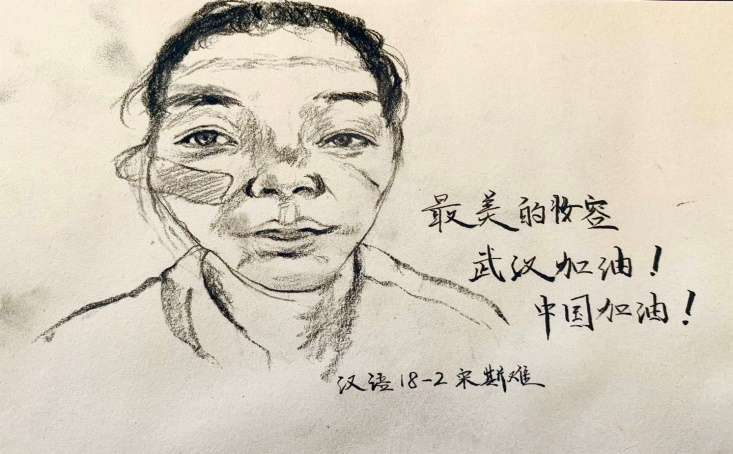 最美的妆容
武汉加油!
中国加油!
汉语18-2 宋斯难